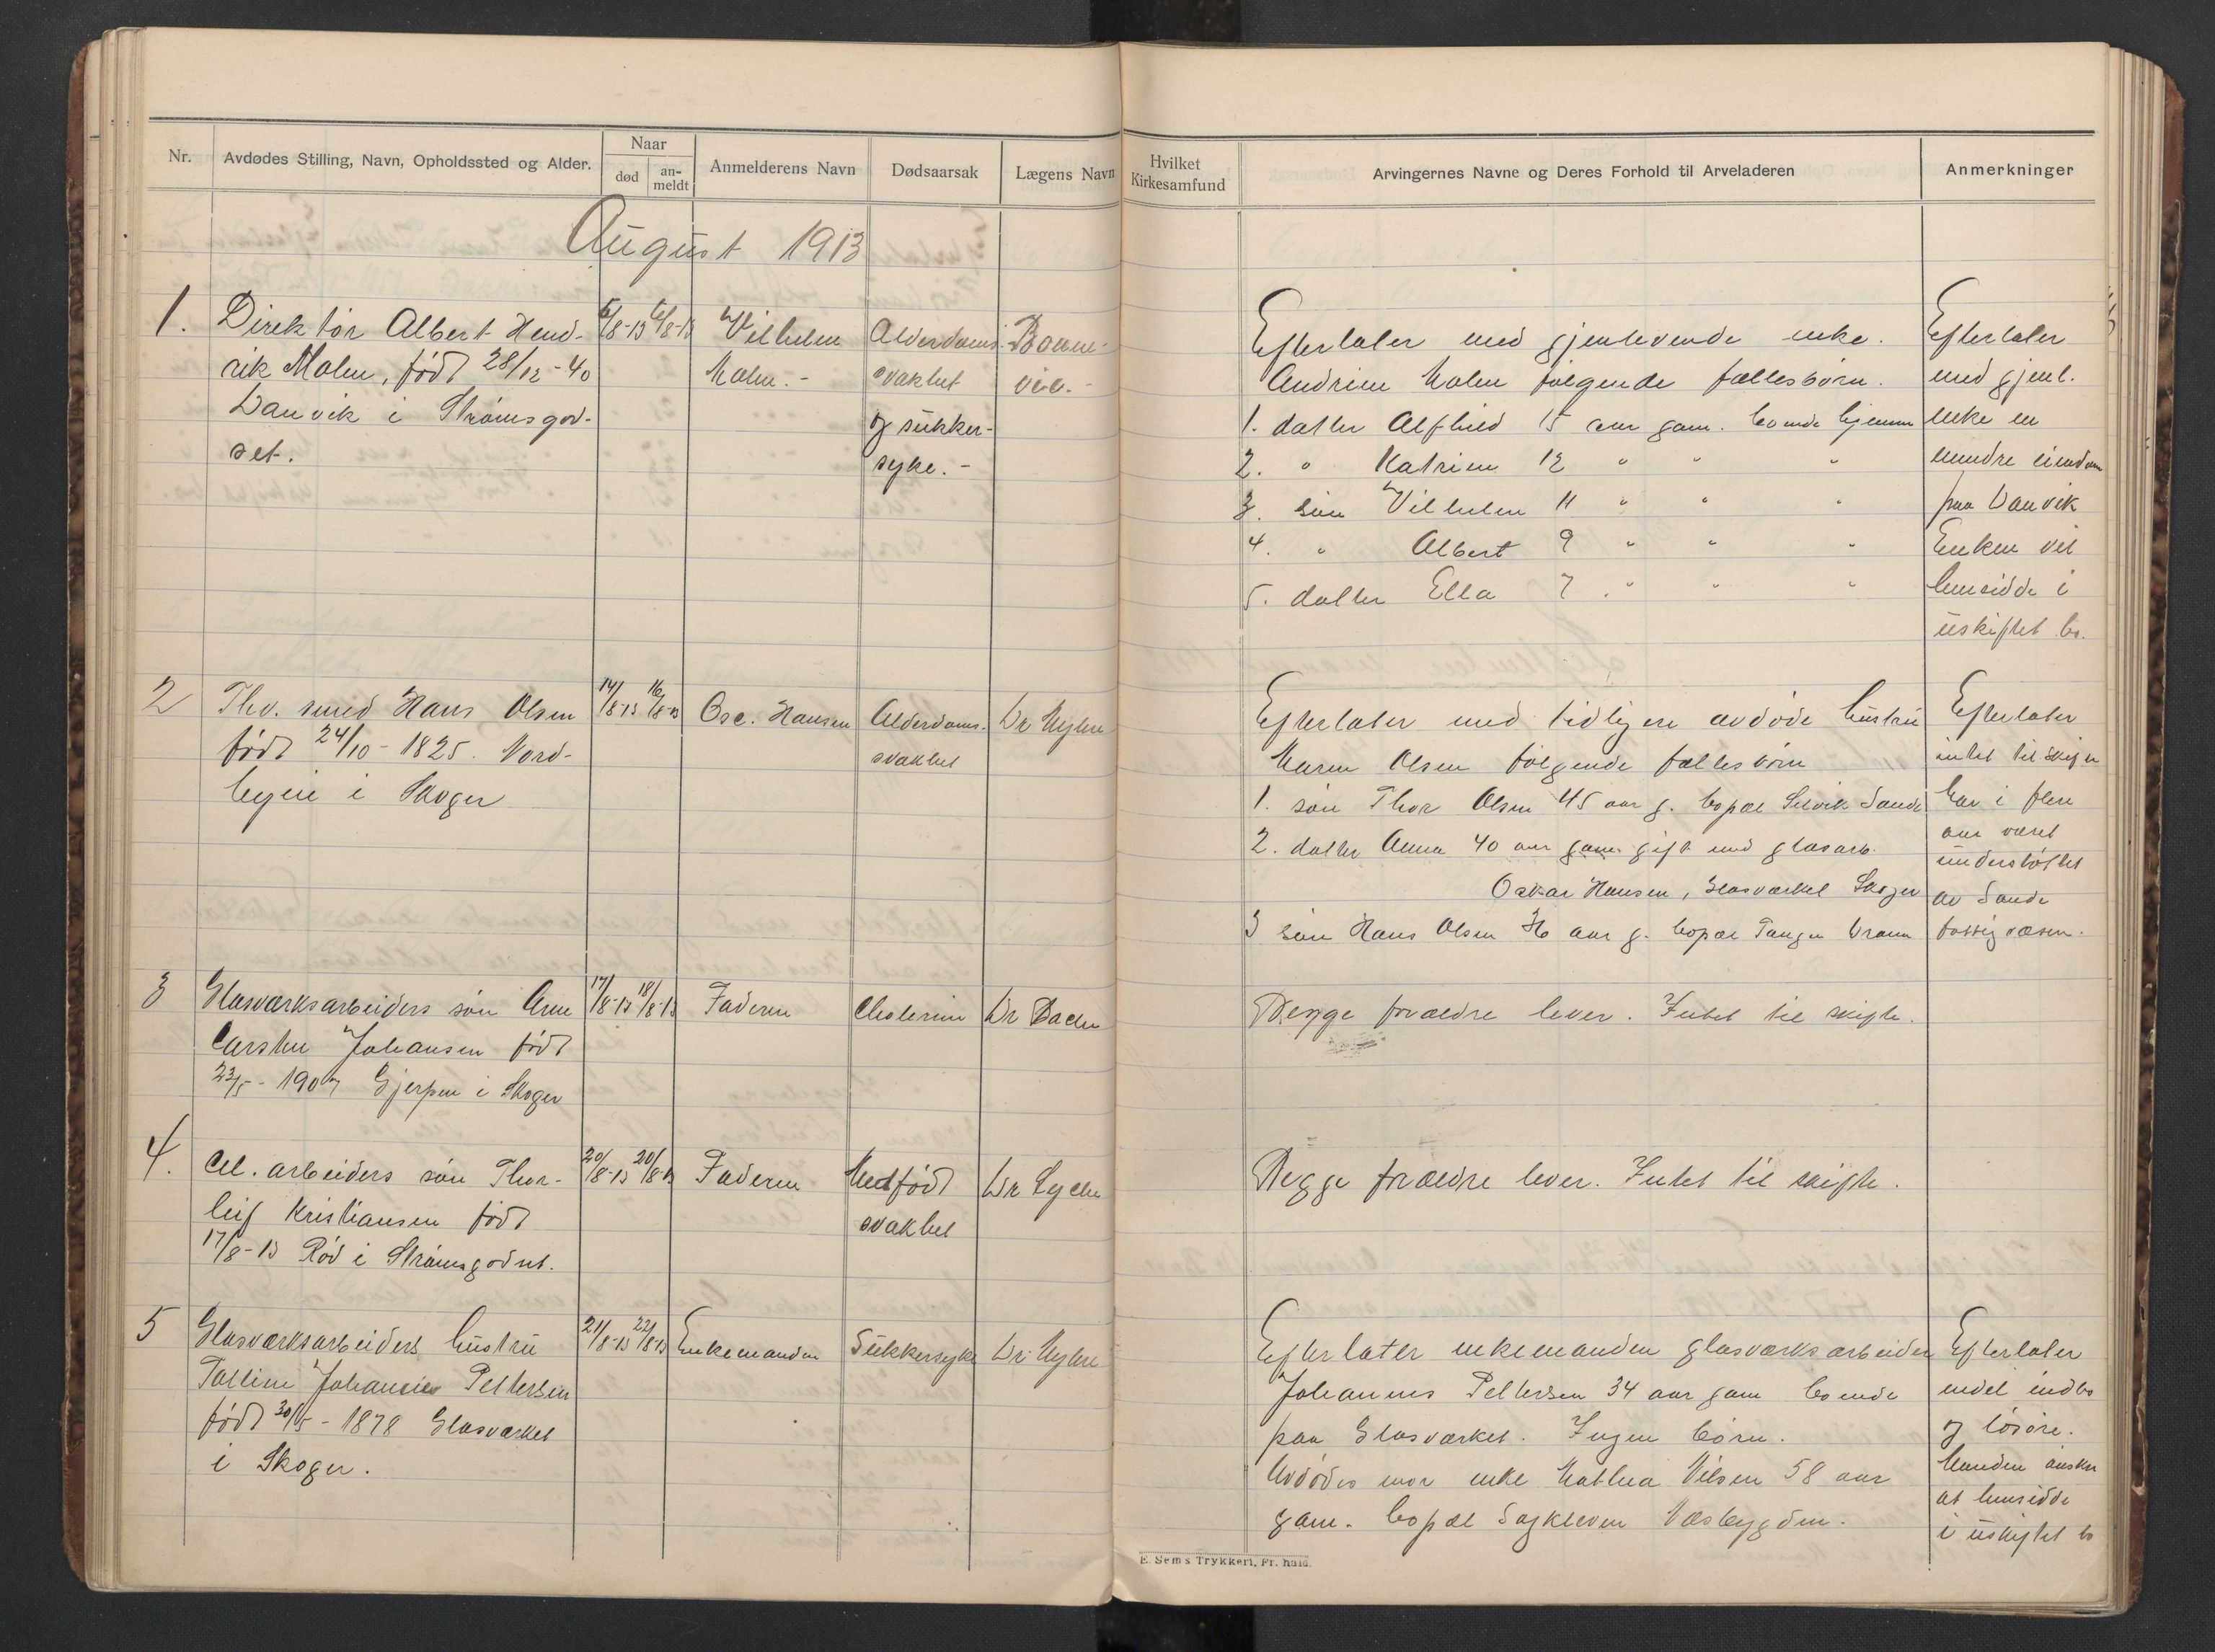 Nr.
Avdødes Stilling, Navn, Opholdssted og Alder.
Naar
død
an-
meldt
Anmelderens Navn
Dødsaarsak
Lægens Navn
Hvilket
Kirkesamfund
Arvingernes Navne og Deres Forhold til Arveladeren
Anmerkninger
August 1913
1.
Direktör Albert Hend-
rik Malm, född 28/12-40
Danvik i Strömsgod-
set.
6/8-13
6/8-13
Vilhelm
Malm.-
Alderdoms-
svakhet
og sukker-
syke.-
Efterlater med gjenlevende enke.
Andrine Malm fölgende fællesbörn.
1. datter Alfhild 15 aar gam. boende hjemme
2. " Katrine 12 " " "
3. sön Vilhelm 11 " " "
4. " Albert 9 " " "
5. datter Ella 7 " " "
Efterlater
med gjenl.
enke en
mindre eiendom
paa Danvik
Enken vil
hensidde i
uskiftet bo.
2
Fhv. smed Hans Olsen
född 24/10-1825. Nord-
byeie i Skoger
14/8-13
16/8-13
Osc. Hansen
Alderdoms-
svakhet
Dr Myhre
Efterlater med tidligere avdöde hustru
Maren Olsen fölgende fællesbörn
1. sön Thor Olsen 45 aar g. bopæl Selvik Sande
2. datter Anna 40 aar gam. gift med glasarb.
Oskar Hansen, Glasværket Skoger
3 sön Hans Olsen 36 aar g. bopæl Tangen Dramm
Efterlater
intet til skifte
har i flere
aar været
understöttet
av Sande
fattigvæsen.
3
Glasværksarbeiders sön Arne
Carsten Johansen född
23/5-1907 Gjerpen i Skoger
17/8-13
18/8-13
Faderen
Cholerine
Dr
Begge forældre lever. Intet til skifte.
4.
Cel. arbeiders sön Thor-
leif Kristiansen född
17/8-13 Röd i Strömsgodset.
20/8-13
20/8-13
Faderen
Medfödt
svakhet
Dr Lyche
Begge forældre lever. Intet til skifte.
5
Glasværksarbeiders hustru
Johansine Pettersen
född 30/5-1878 Glasværket
i Skoger.
21/8-13
22/8-13
Enkemanden
Sukkersyke
Dr. Myhre
Efterlater enkemanden glasværksarbeider
Johannes Pettersen 34 aar gam boende
paa Glasværket. Ingen börn.
Avdödes mor enke Mathea Nilsen 58 aar
gam. bopæl Sagkleven Næsbygden.
Efterlater
endel indbo
og lösöre.
Manden önsker
at hensidde
i uskiftet bo
E. Sem's Trykkeri, Fr.hald.